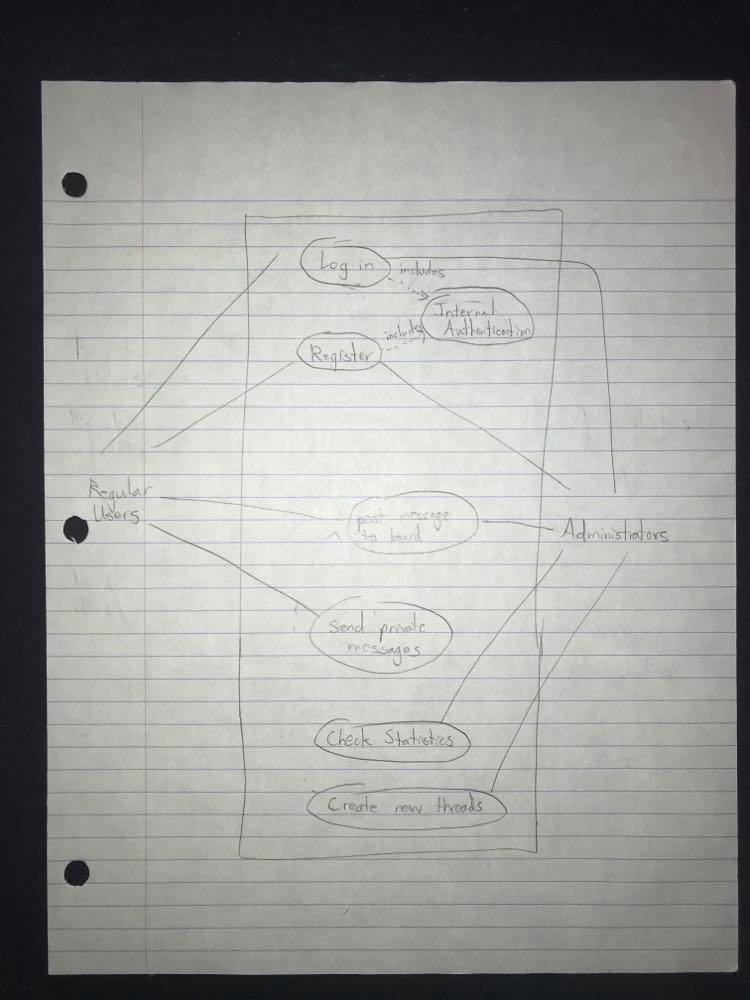 Log in
includes
Internal
Authentication
includes
Register
Regular
Users
post message
to board
Administrators
Send private
messages
Check Statistics
Create new threads